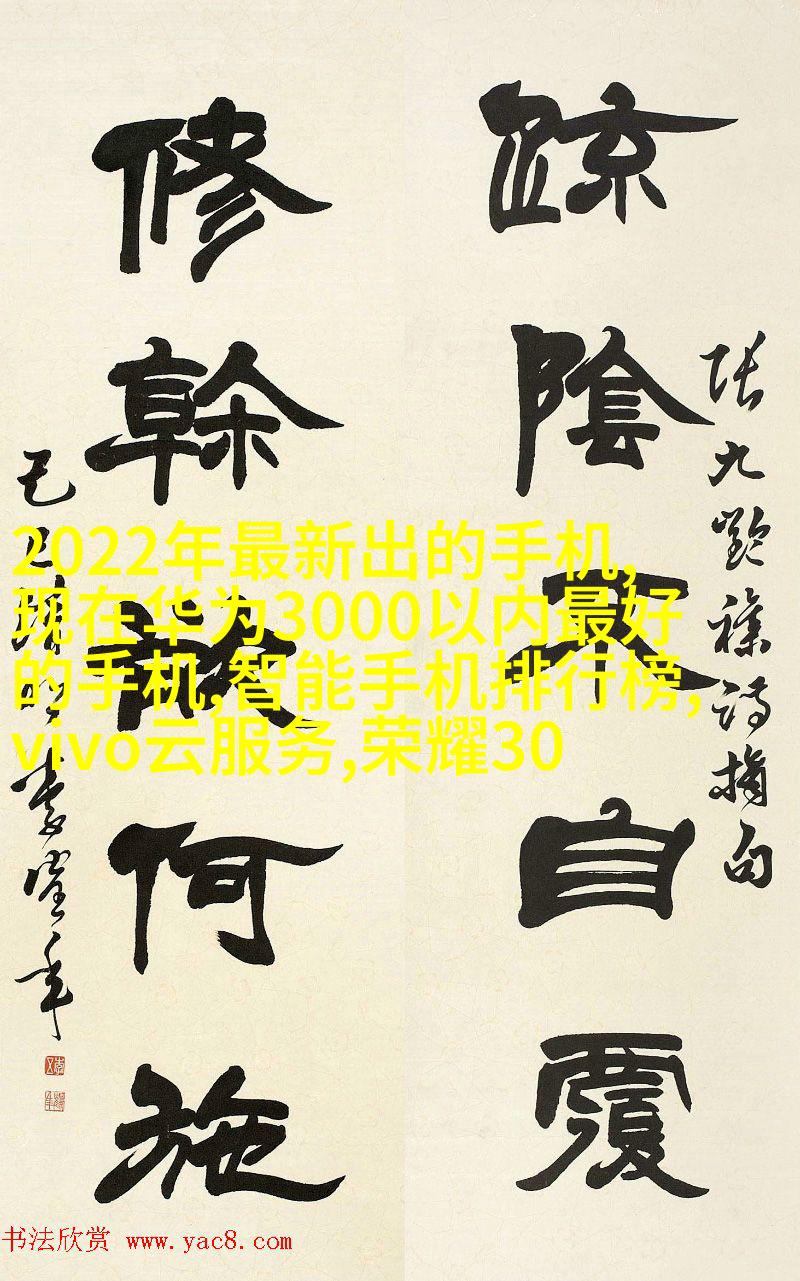 疏陰不自覆
張九齡雜詩摘句
修幹欲何施
2022年最新出的手机,
现在华为3000以内最好
的手机,智能手机排行榜,
vivo云服务,荣耀30
书法欣赏 www.yac8.com